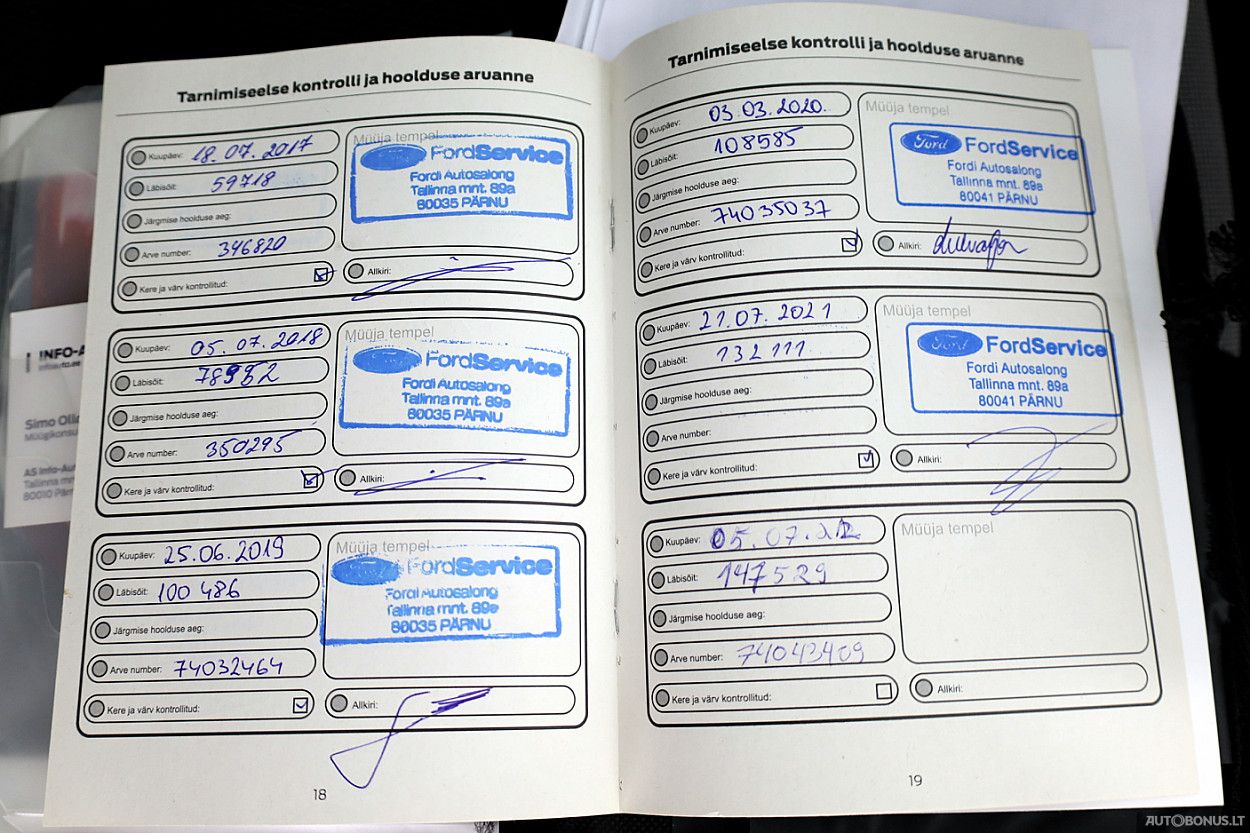 Tarnimiseelse kontrolli ja hoolduse aruanne
Kuupäev: 18.07.2017
Läbisõit: 59718
Järgmise hoolduse aeg:
Arve number: 346820
Kere ja värv kontrollitud:
Müüja tempel
Ford FordService
Fordi Autosalong
Tallinna mnt. 89a
80035 PÄRNU
Allkiri:
Kuupäev: 05.07.2018
Läbisõit: 78952
Järgmise hoolduse aeg:
Arve number: 350295
Kere ja värv kontrollitud:
Müüja tempel
Ford FordService
Fordi Autosalong
Tallinna mnt. 89a
80035 PÄRNU
Allkiri:
Kuupäev: 25.06.2019
Läbisõit: 100 486
Järgmise hoolduse aeg:
Arve number: 74032464
Kere ja värv kontrollitud:
Müüja tempel
FordService
Fordi Autosalong
Tallinna mnt. 89a
80035 PÄRNU
Allkiri:
18
Tarnimiseelse kontrolli ja hoolduse aruanne
Kuupäev: 03.03.2020.
Läbisõit: 108585
Järgmise hoolduse aeg:
Arve number: 74035037
Kere ja värv kontrollitud:
Müüja tempel
Ford FordService
Fordi Autosalong
Tallinna mnt. 89a
80041 PÄRNU
Allkiri:
Kuupäev: 21.07.2021
Läbisõit: 132 111
Järgmise hoolduse aeg:
Arve number:
Kere ja värv kontrollitud:
Müüja tempel
Ford FordService
Fordi Autosalong
Tallinna mnt. 89a
80041 PÄRNU
Allkiri:
Kuupäev: 05.07.22
Läbisõit: 147529
Järgmise hoolduse aeg:
Arve number: 74043409
Kere ja värv kontrollitud:
Müüja tempel
Allkiri:
19
INFO-A
infoauto.ee
Simo
Müügikonsu
AS Info-Au
Tallinna mn
80010 Pärn
AUTOBONUS.LT